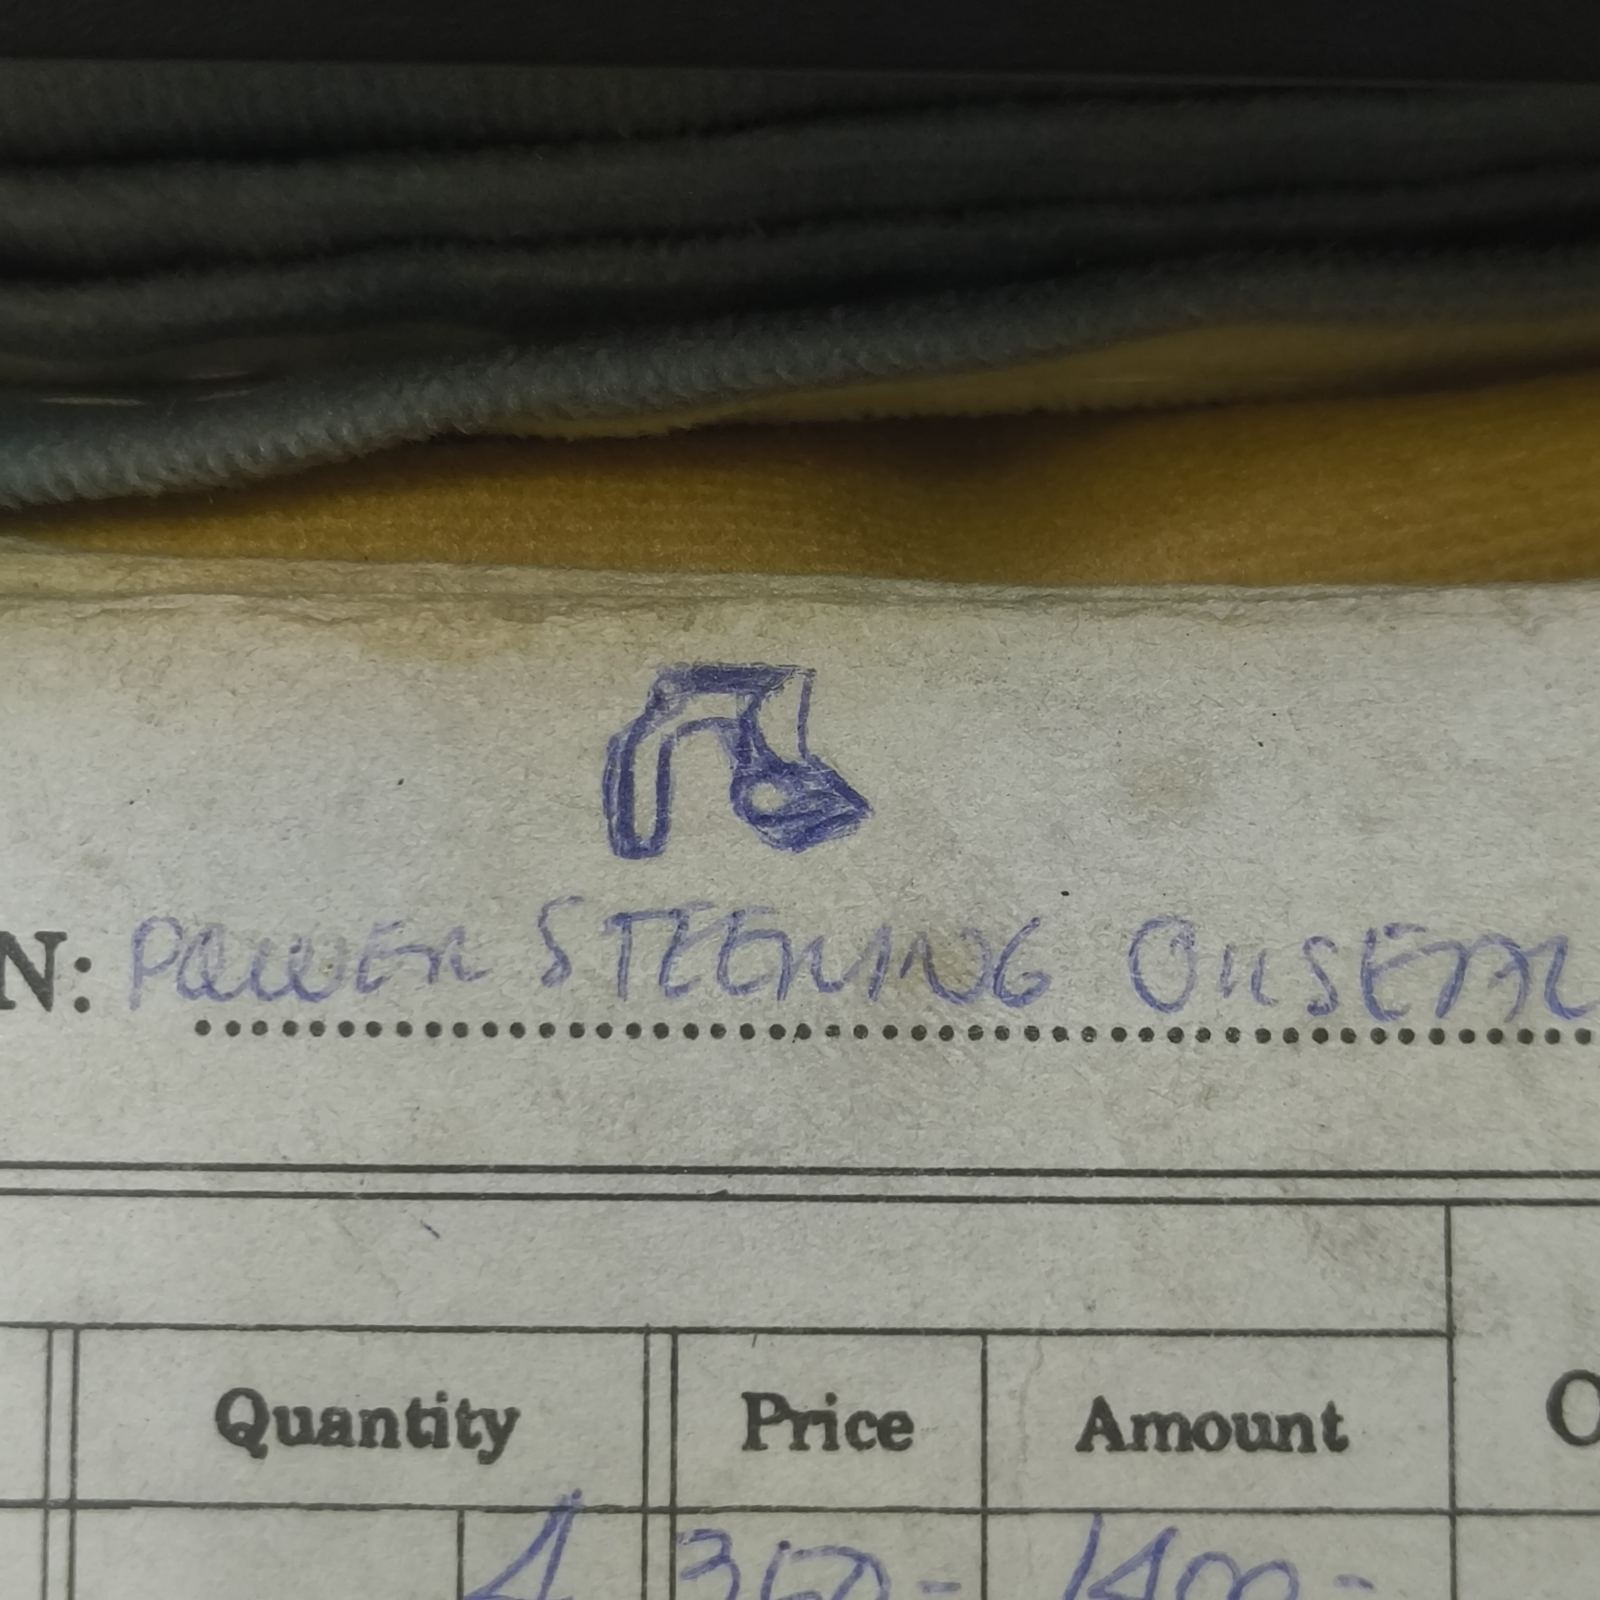 N: POWER STEERING OILSEAL
Quantity Price Amount
4 350- 1400-